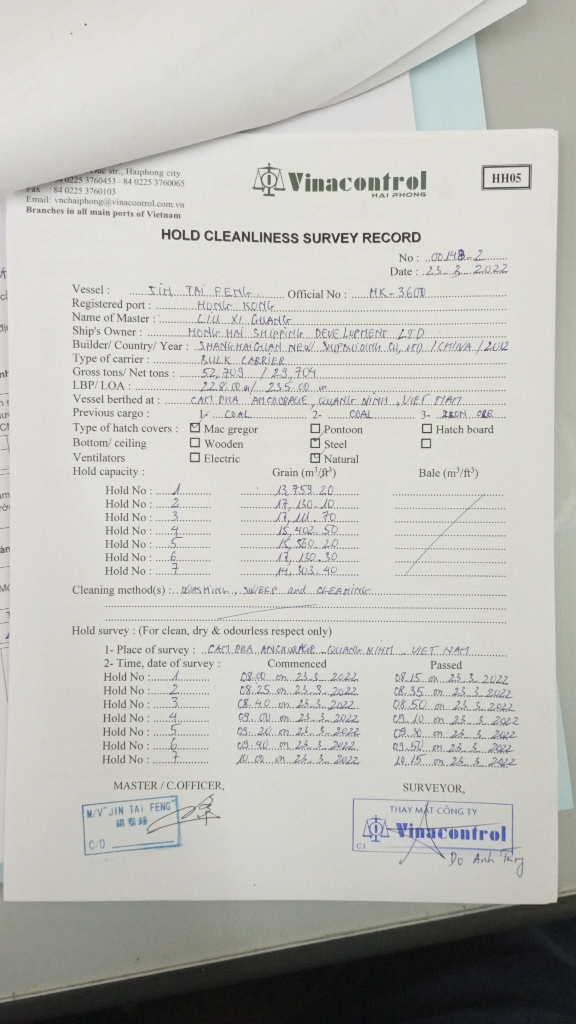 str., Haiphong city
84 0225 3760453 - 84 0225 3760065
Fax : 84 0225 3760103
Email: vnchaiphong@vinacontrol.com.vn
Branches in all main ports of Vietnam
Vinacontrol
HAI PHONG
HH05
HOLD CLEANLINESS SURVEY RECORD
No : 00148-2
Date : 23.3.2022
Vessel : JIN TAI FENG Official No : HK-3600
Registered port : HONG KONG
Name of Master : LIU XI GUANG
Ship's Owner : HONG HAI SHIPPING DEVELOPMENT LTD
Builder/ Country/ Year : SHANGHAIGUAN NEW SHIPBUILDING CO, LTD / CHINA / 2012
Type of carrier : BULK CARRIER
Gross tons/ Net tons : 52,709 / 29,704
LBP/ LOA : 228.00 m/ 235.00 m
Vessel berthed at : CAM PHA ANCHORAGE, QUANG NINH, VIET NAM
Previous cargo : 1- COAL 2- COAL 3- IRON ORE
Type of hatch covers : Mac gregor Pontoon Hatch board
Bottom/ ceiling Wooden Steel
Ventilators Electric Natural
Hold capacity : Grain (m³/ft³) Bale (m³/ft³)
Hold No : 1 13,759.20
Hold No : 2 17,130.10
Hold No : 3 17,111.70
Hold No : 4 15,402.50
Hold No : 5 15,560.20
Hold No : 6 17,130.30
Hold No : 7 14,303.40
Cleaning method(s) : WASHING, SWEEP and CLEANING
Hold survey : (For clean, dry & odourless respect only)
1- Place of survey : CAM PHA ANCHORAGE - QUANG NINH - VIET NAM
2- Time, date of survey : Commenced Passed
Hold No : 1 08.00 on 23.3.2022 08.15 on 23.3.2022
Hold No : 2 08.25 on 23.3.2022 08.35 on 23.3.2022
Hold No : 3 08.40 on 23.3.2022 08.50 on 23.3.2022
Hold No : 4 09.00 on 23.3.2022 09.10 on 23.3.2022
Hold No : 5 09.20 on 23.3.2022 09.30 on 23.3.2022
Hold No : 6 09.40 on 23.3.2022 09.50 on 23.3.2022
Hold No : 7 10.00 on 23.3.2022 10.15 on 23.3.2022
MASTER / C.OFFICER, SURVEYOR,
M/V "JIN TAI FENG"
C/O
THAY MẶT CÔNG TY
Vinacontrol
C1
Do Anh Tung